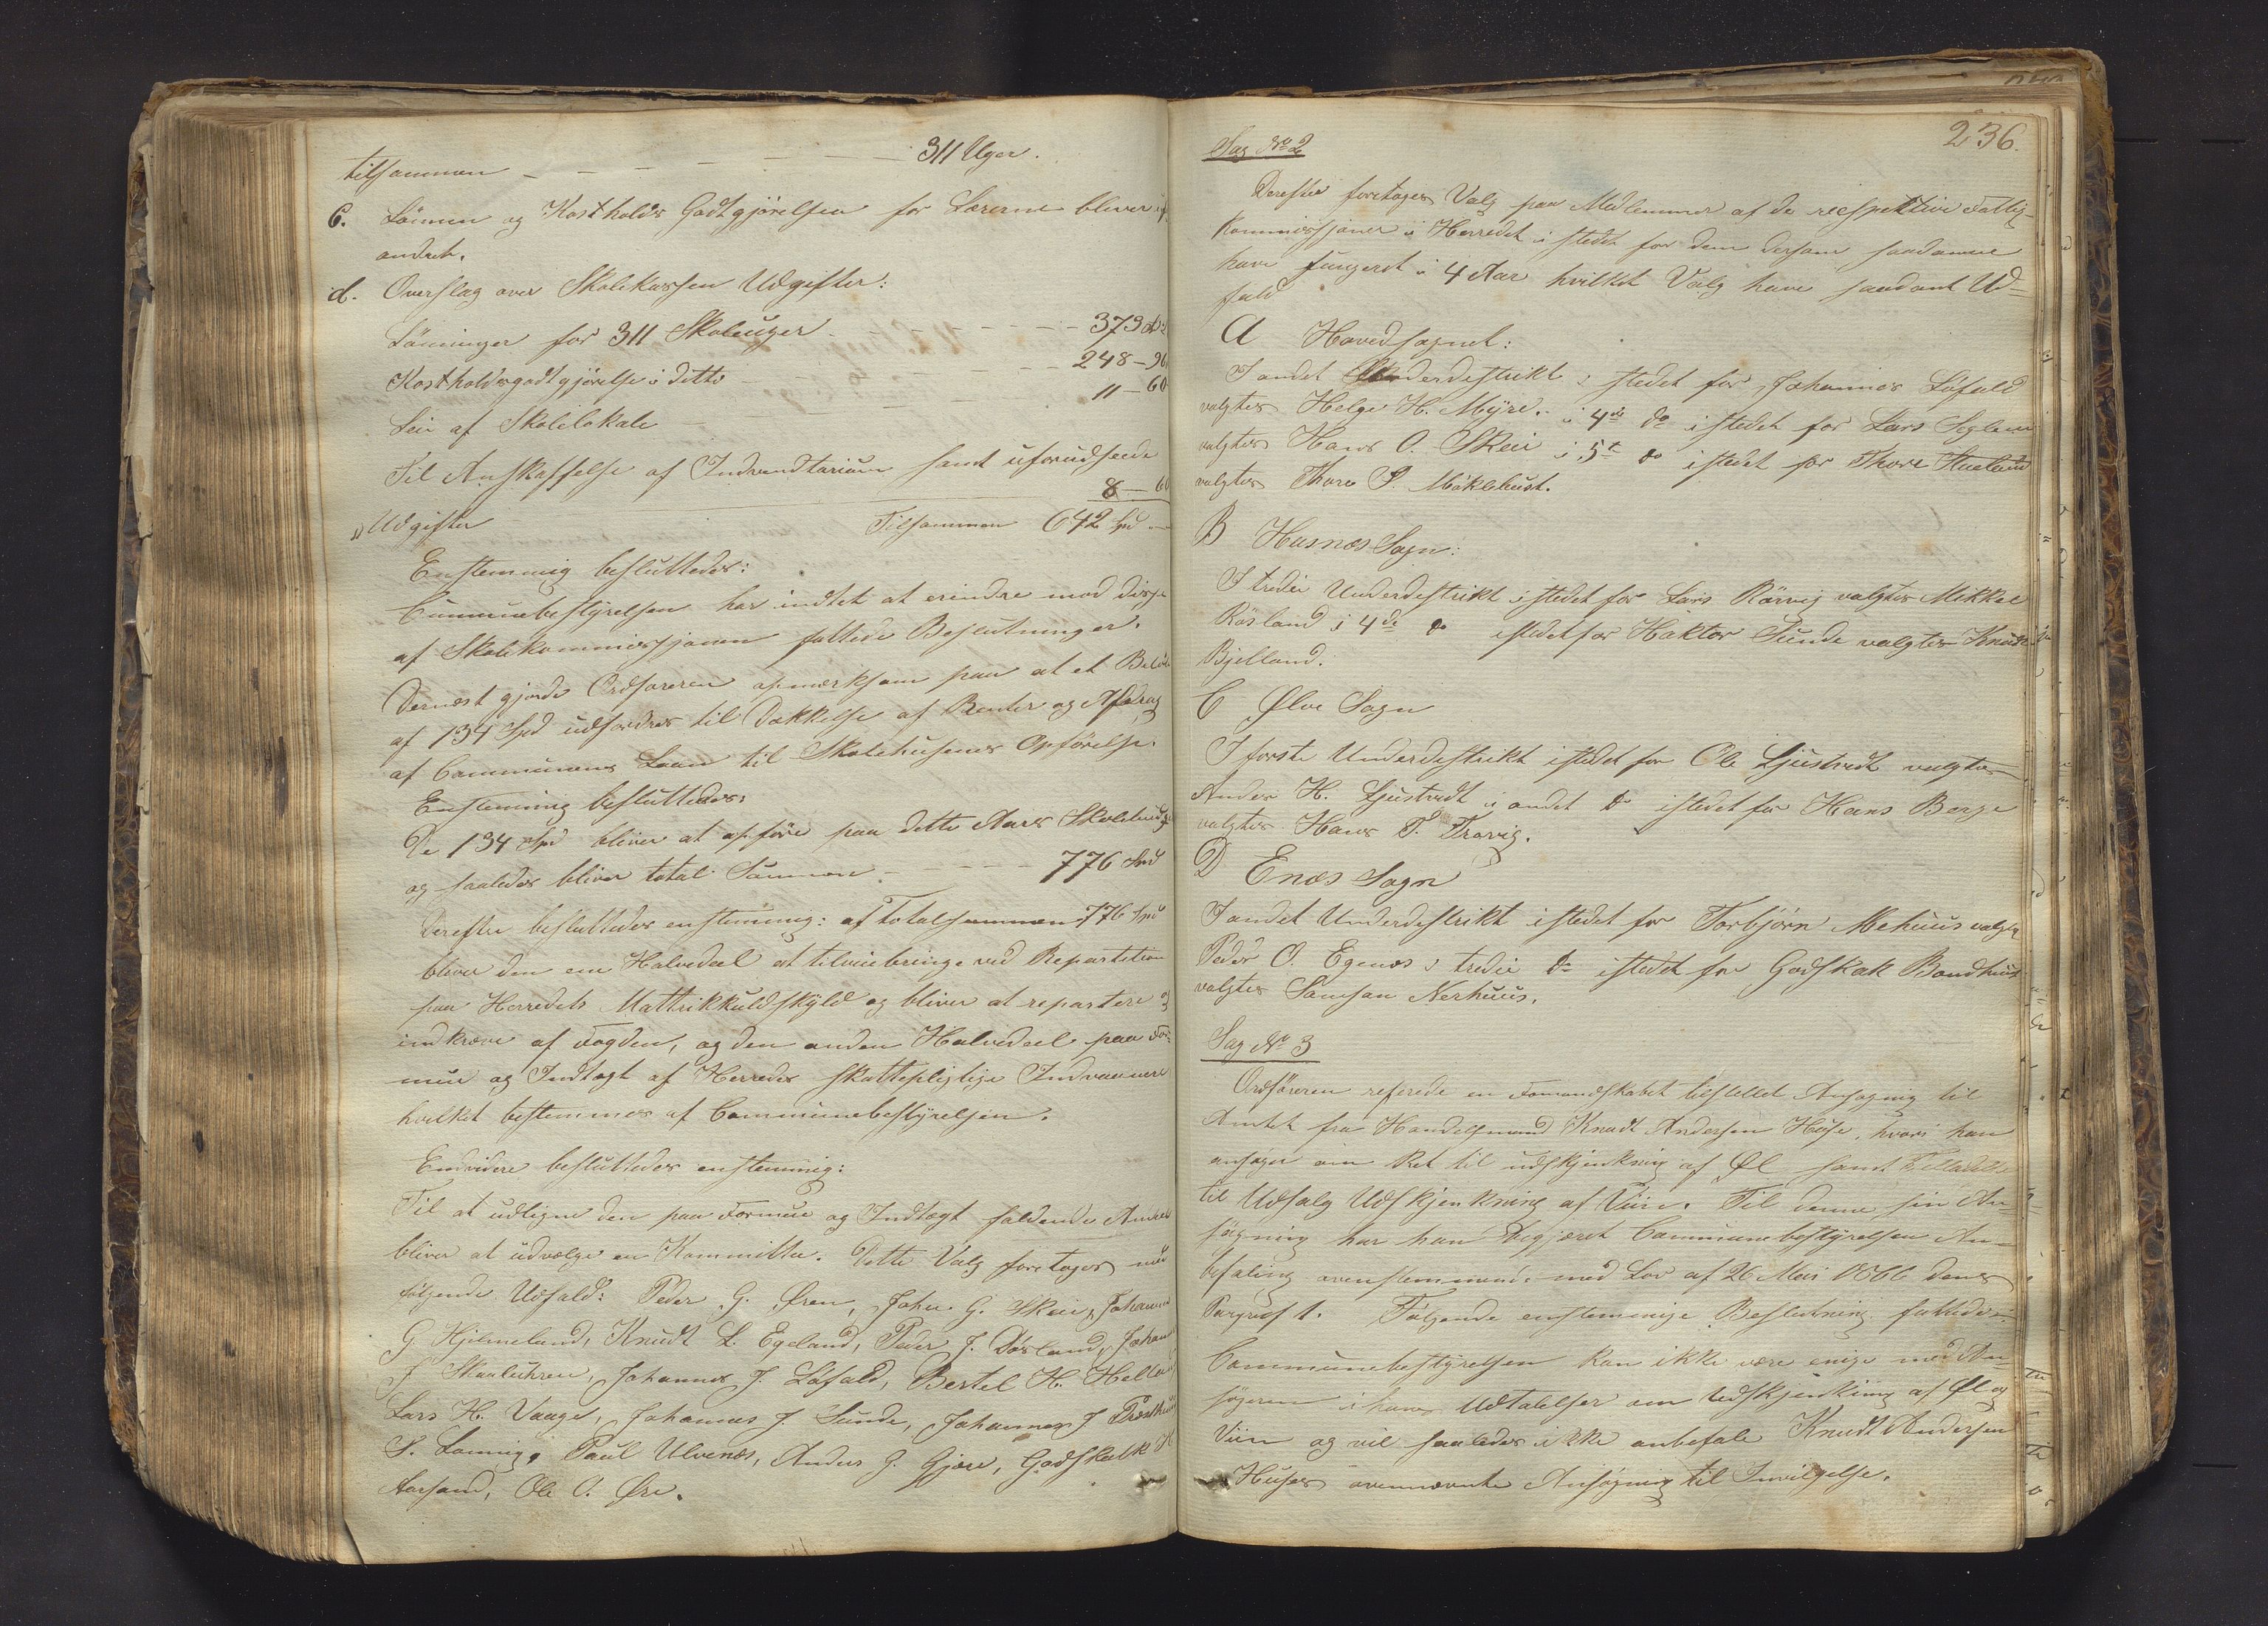 tilsammen — — — — — — 311 Uger.
C. Lönnen og Kostholds Godtgjörelsen for Lærerne bliver
andret.
d. Overslag over Skolekassen Udgifter:
Lönninger for 311 Skoleuger - - - - - 373
Kostholdsgodtgjörelse i ditto - - - - 248 - 96
Leie af Skolelokale - - - 11 - 60
Til Anskaffelse af Indvendtarium samt uforudseede
Udgifter 8 - 60
Tilsammen 642 Spd
Enstemmig besluttedes:
Communebestyrelsen har indtet at erindre mod disse
af Skolekommissjonen fattede Beslutninger.
Dernæst gjorde Ordföreren opmærksom paa at et Belöb
af 134 Spd udfordres til Dækkelse af Renter og Afdrag
af Communens Laan til Skolehusenes Opförelse.
Enstemmig besluttedes:
De 134 Spd bliver at opföre paa dette Aars Skolebudg
og saaledes bliver total Summen - - - 776 Spd
Derefter besluttedes enstemmig: af Totalsummen 776 Spd
bliver den ene Halvedeel at tilveiebringe ved Repartition
paa Herredets Mattrikkuldskyld og bliver at repartere og
indkræve af Fogden, og den anden Halvedeel paa For-
mue og Indtægt af Herredes skattepligtige Indvaanere
hvilket bestemmes af Communebestyrelsen.
Endvidere besluttedes enstemmig:
Til at udligne den paa Formue og Indtægt faldende Andeel
bliver at udvælge en Kommitte. Dette Valg foretages med
fölgende Udfald: Peder G. Øren, John G. Skeie, Johannes
G Hjelmeland, Knudt L. Egeland, Peder J. Dösland, Johan
J Skaaluhren, Johannes J. Löfald, Bertel H. Helland
Lars H. Vaage, Johannes J Sunde, Johannes J Presthuus
S. Lanning, Paul Ulvenæs, Anders G. Gjære, Godskalk H
Aarsand, Ole O. Øre.
236.
Sag No 2
Derefter foretages Valg paa Medlemmer af de respektive Fattig-
kommissjoner i Herredet i stedet for dem dersom saadanne
have fungeret i 4 Aar hvilket Valg have saadant Ud-
fald
A Hovedsognet:
I andet Underdestrikt i stedet for Johannes Löfald
valgtes Helge H. Myre. i 4de do i stedet for Lars Seglem
valgtes Hans O. Skeie i 5te do istedet for Thore Stueland
valgtes Thore P. Möklebust.
B Husnæs Sogn:
I tredie Underdestrikt istedet for Lars Rörvig valgtes Mikkel
Rösland i 4de do istedetfor Haktor Sunde valgtes Knudt
Bjelland.
C Ølve Sogn
I förste Underdestrikt istedet for Ole Ljustvedt valgtes
Anders H. Ljustvedt i andet do istedet for Hans Berge
valgtes Hans P. Travig.
D Enæs Sogn
I andet Underdestrikt istedet for Torbjörn Mehuus valgtes
Peder O. Egenæs i tredie do istedet for Godskalk Bondhuus
valgtes Samson Nerhuus.
Sag No 3
Ordföreren refererede en Formandskabet tilstillet Ansögning til
Amtet fra Handelsmand Knudt Andersen Huse, hvori han
ansöger om Ret til udskjenkning af Øl samt Tilladelse
til Udsalg Udskjenkning af Viin. Til denne sin An-
sögning har han begjæret Communebestyrelsen An-
befaling overenstemmende med Lov af 26 Mai 1866 dens
Pargraf 1. Fölgende enstemmige Beslutning fattedes:
Communebestyrelsen kan ikke være enige med An-
sögeren i hans Udtalelser om Udskjenkning af Øl og
Viin og vil saaledes ikke anbefale Knudt Andersen
Huses ovennævnte Ansögning til Inviligelse.